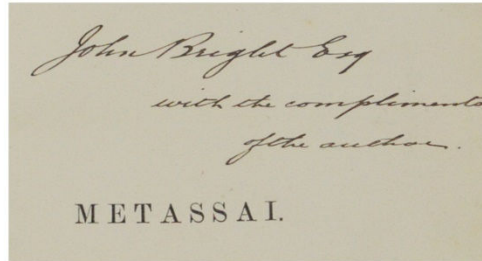 John Bright Esq
with the compliments
of the author.
METASSAI.